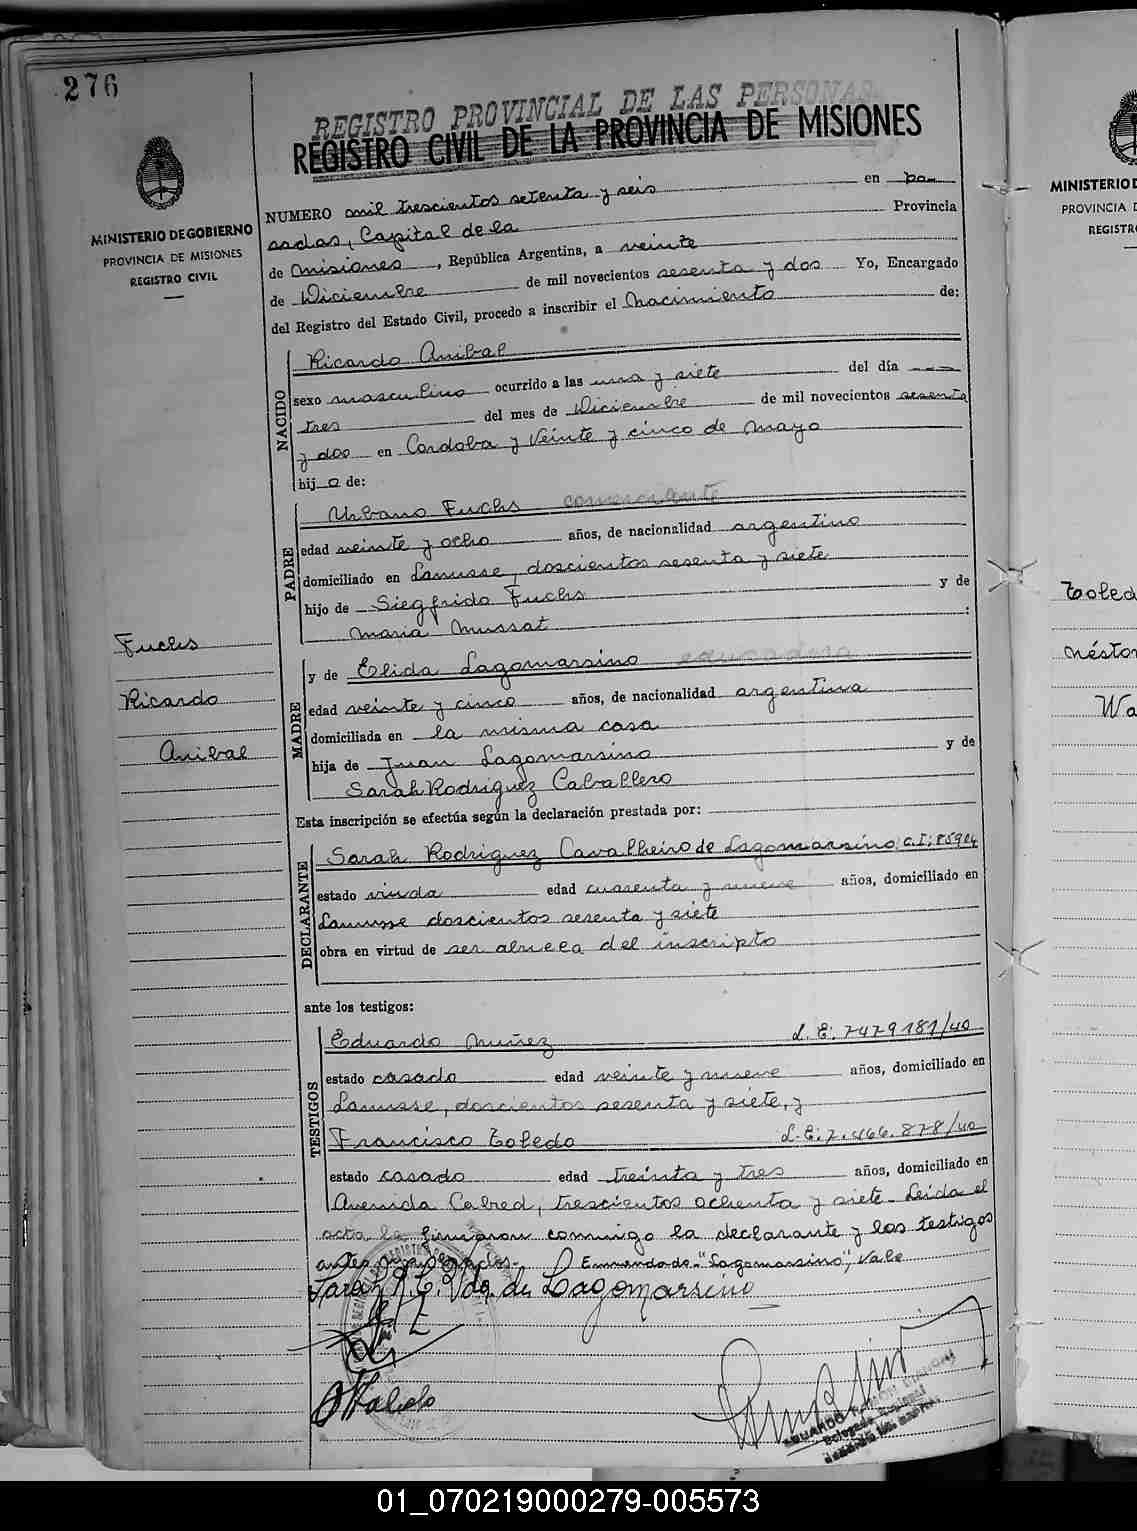 276
REGISTRO PROVINCIAL DE LAS PERSONAS
REGISTRO CIVIL DE LA PROVINCIA DE MISIONES
MINISTERIO DE GOBIERNO
PROVINCIA DE MISIONES
REGISTRO CIVIL
NUMERO mil trescientos setenta y seis en po-
sadas, Capital de la Provincia
de Misiones, República Argentina, a veinte
de Diciembre de mil novecientos sesenta y dos Yo, Encargado
del Registro del Estado Civil, procedo a inscribir el Nacimiento de:
NACIDO
Ricardo Anibal
sexo masculino ocurrido a las una y siete del día
tres del mes de Diciembre de mil novecientos sesenta
y dos en Cordoba y Veinte y cinco de Mayo
hij o de:
PADRE
Urbano Fuchs comerciante
edad veinte y ocho años, de nacionalidad argentino
domiciliado en Lanusse, doscientos sesenta y siete
hijo de Siegfrido Fuchs y de
Maria Mussat :
Fuchs
Ricardo
Anibal
MADRE
y de Elida Lagomarsino educadora
edad veinte y cinco años, de nacionalidad argentina
domiciliada en la misma casa
hija de Juan Lagomarsino y de
Sarah Rodriguez Caballero
Esta inscripción se efectúa según la declaración prestada por:
DECLARANTE
Sarah Rodriguez Cavalheiro de Lagomarsino C.I: 85904
estado viuda edad cuarenta y nueve años, domiciliado en
Lanusse doscientos sesenta y siete
obra en virtud de ser abuela del inscripto
ante los testigos:
TESTIGOS
Eduardo Nuñez L.E: 7479181/40
estado casado edad veinte y nueve años, domiciliado en
Lanusse, doscientos sesenta y siete, y
Francisco Toledo L.E: 7.466.878/40
estado casado edad treinta y tres años, domiciliado en
Avenida Cabred, trescientos ochenta y siete. Leida el
acta la firmaron conmigo la declarante y los testigos
antes nombrados. Enmendado: "Lagomarsino", Vale
Sarah R. C. Vda. de Lagomarsino
Delegado Regional
MINISTERIO D
PROVINCIA D
REGISTR
Toled
Nésto
Wa
01_070219000279-005573